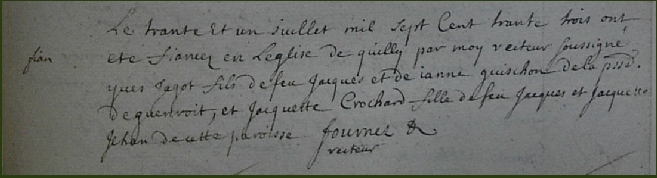 Le trante Et un Juillet mil sept Cent trante trois ont
fian
ete fiancez en Leglise de quilly par moy recteur soussigne
yues Jagot fils de feu Jacques et de ianne quischon de la
De guenroit, et Jacquette Crochard fille de feu Jacques et Jacquette
Jehan de cette paroisse fournel
recteur